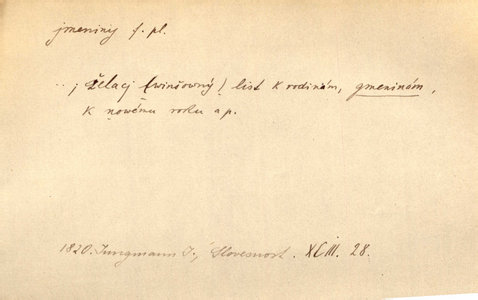 jmeniny f. pl.
.., želacj (winšowný) list k rodinám, gmeninám,
k nowému roku a p.
1820. Jungmann J., Slovesnost. XCIII. 28.